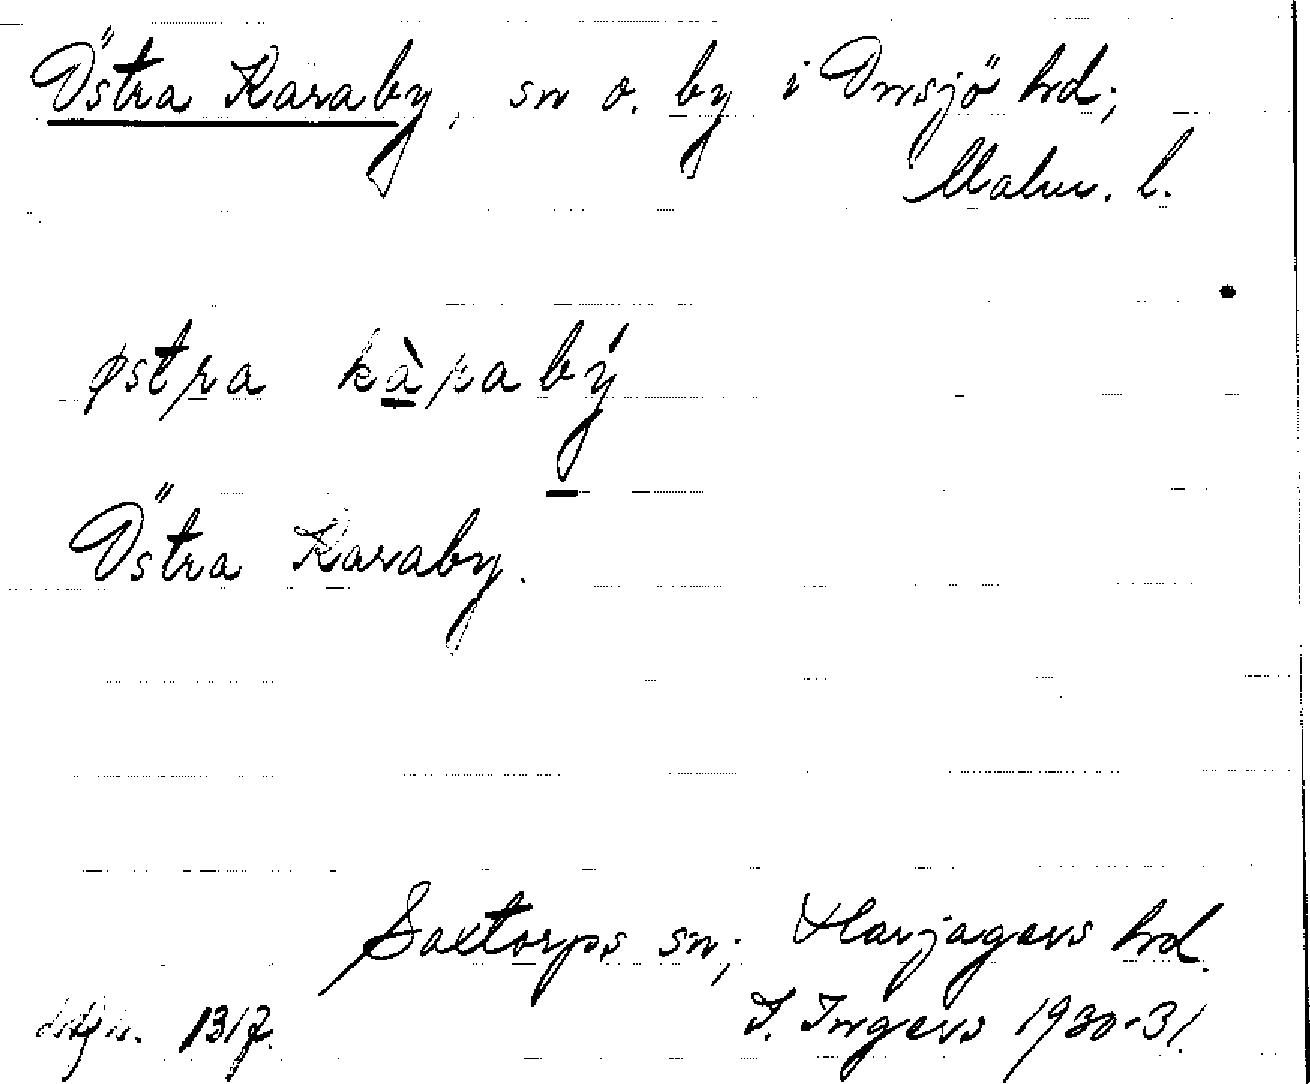 Östra Karaby, sn o. by i Onsjö hd;
Malm. l.
østra kàrabý
Östra Karaby.
Saxtorps sn; Harjagers hd.
1317. I. Ingers 1930-31.